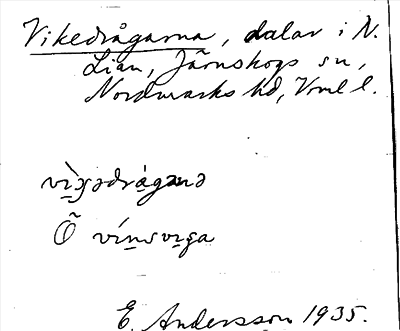 Vikedrågarna, dalar i N.
Lian, Järnskogs sn,
Nordmarks hd, Vrml l.
Õ vínsviga
E. Andersson 1935.